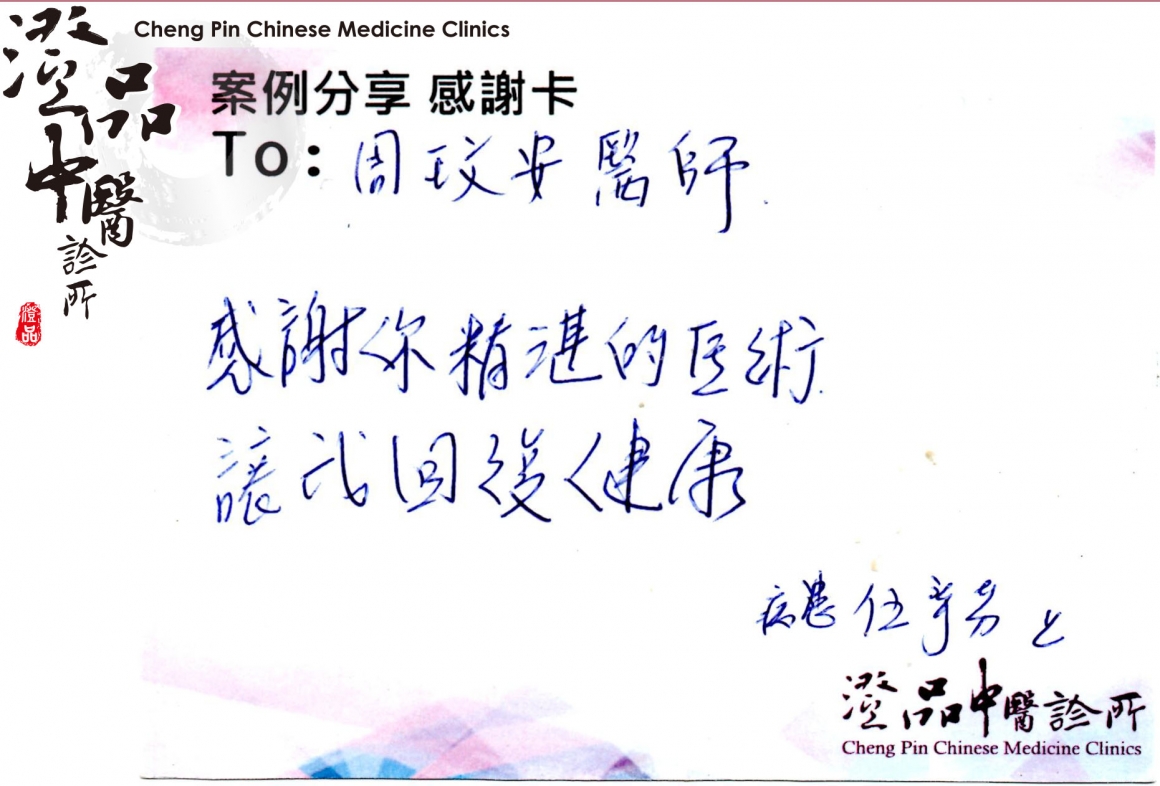 Cheng Pin Chinese Medicine Clinics
澄品中醫診所
澄品
案例分享 感謝卡
To: 周玟安醫師
感謝你精湛的医術
讓我回復健康
病患 伍
澄品中醫診所
Cheng Pin Chinese Medicine Clinics